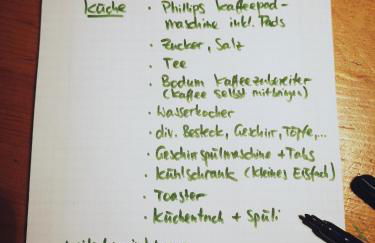 Küche • Phillips Kaffeepad-
maschine inkl. Pads
• Zucker, Salz
• Tee
• Bodum Kaffeezubereiter
(Kaffee selbst mitbringen)
• Wasserkocher
• div. Besteck, Geschirr, Töpfe,...
• Geschirrspülmaschine + Tabs
• Kühlschrank (kleines Eisfach)
• Toaster
• Küchentuch + Spüli